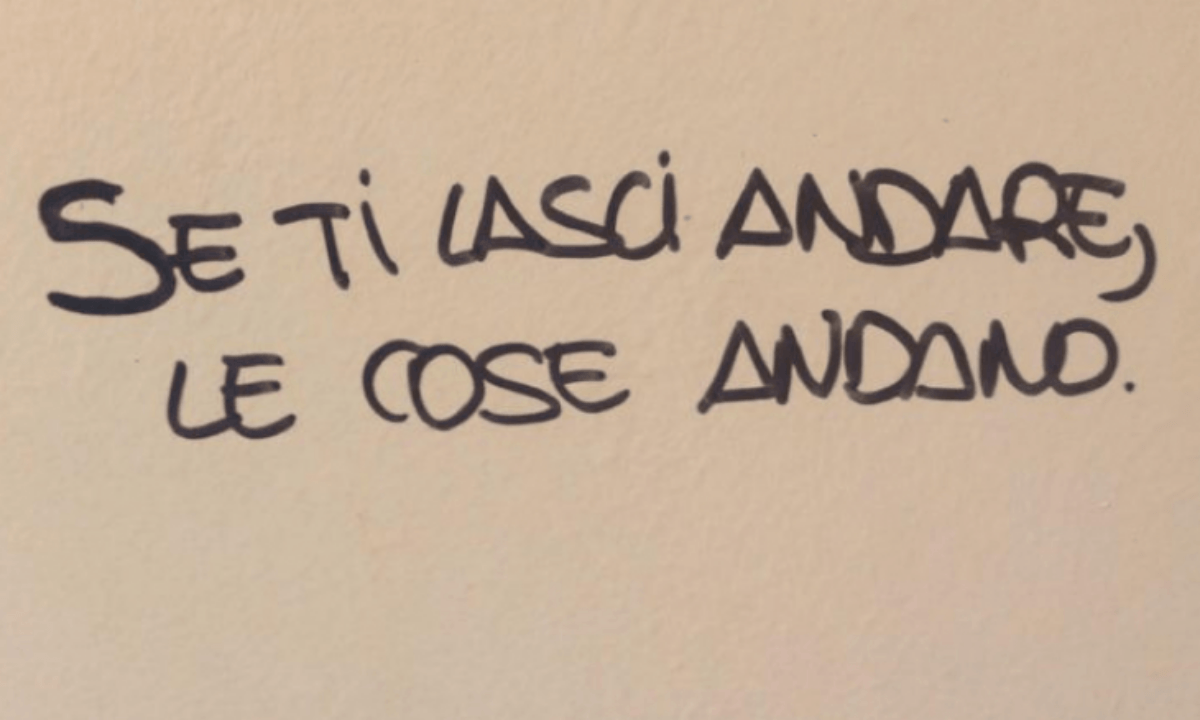 SE Ti LASCi ANDARE,
LE COSE ANDANO.